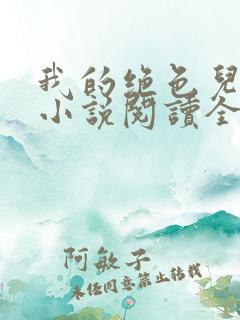 我的絶色兒
小說閱讀全
阿敏子
未经同意禁止转载